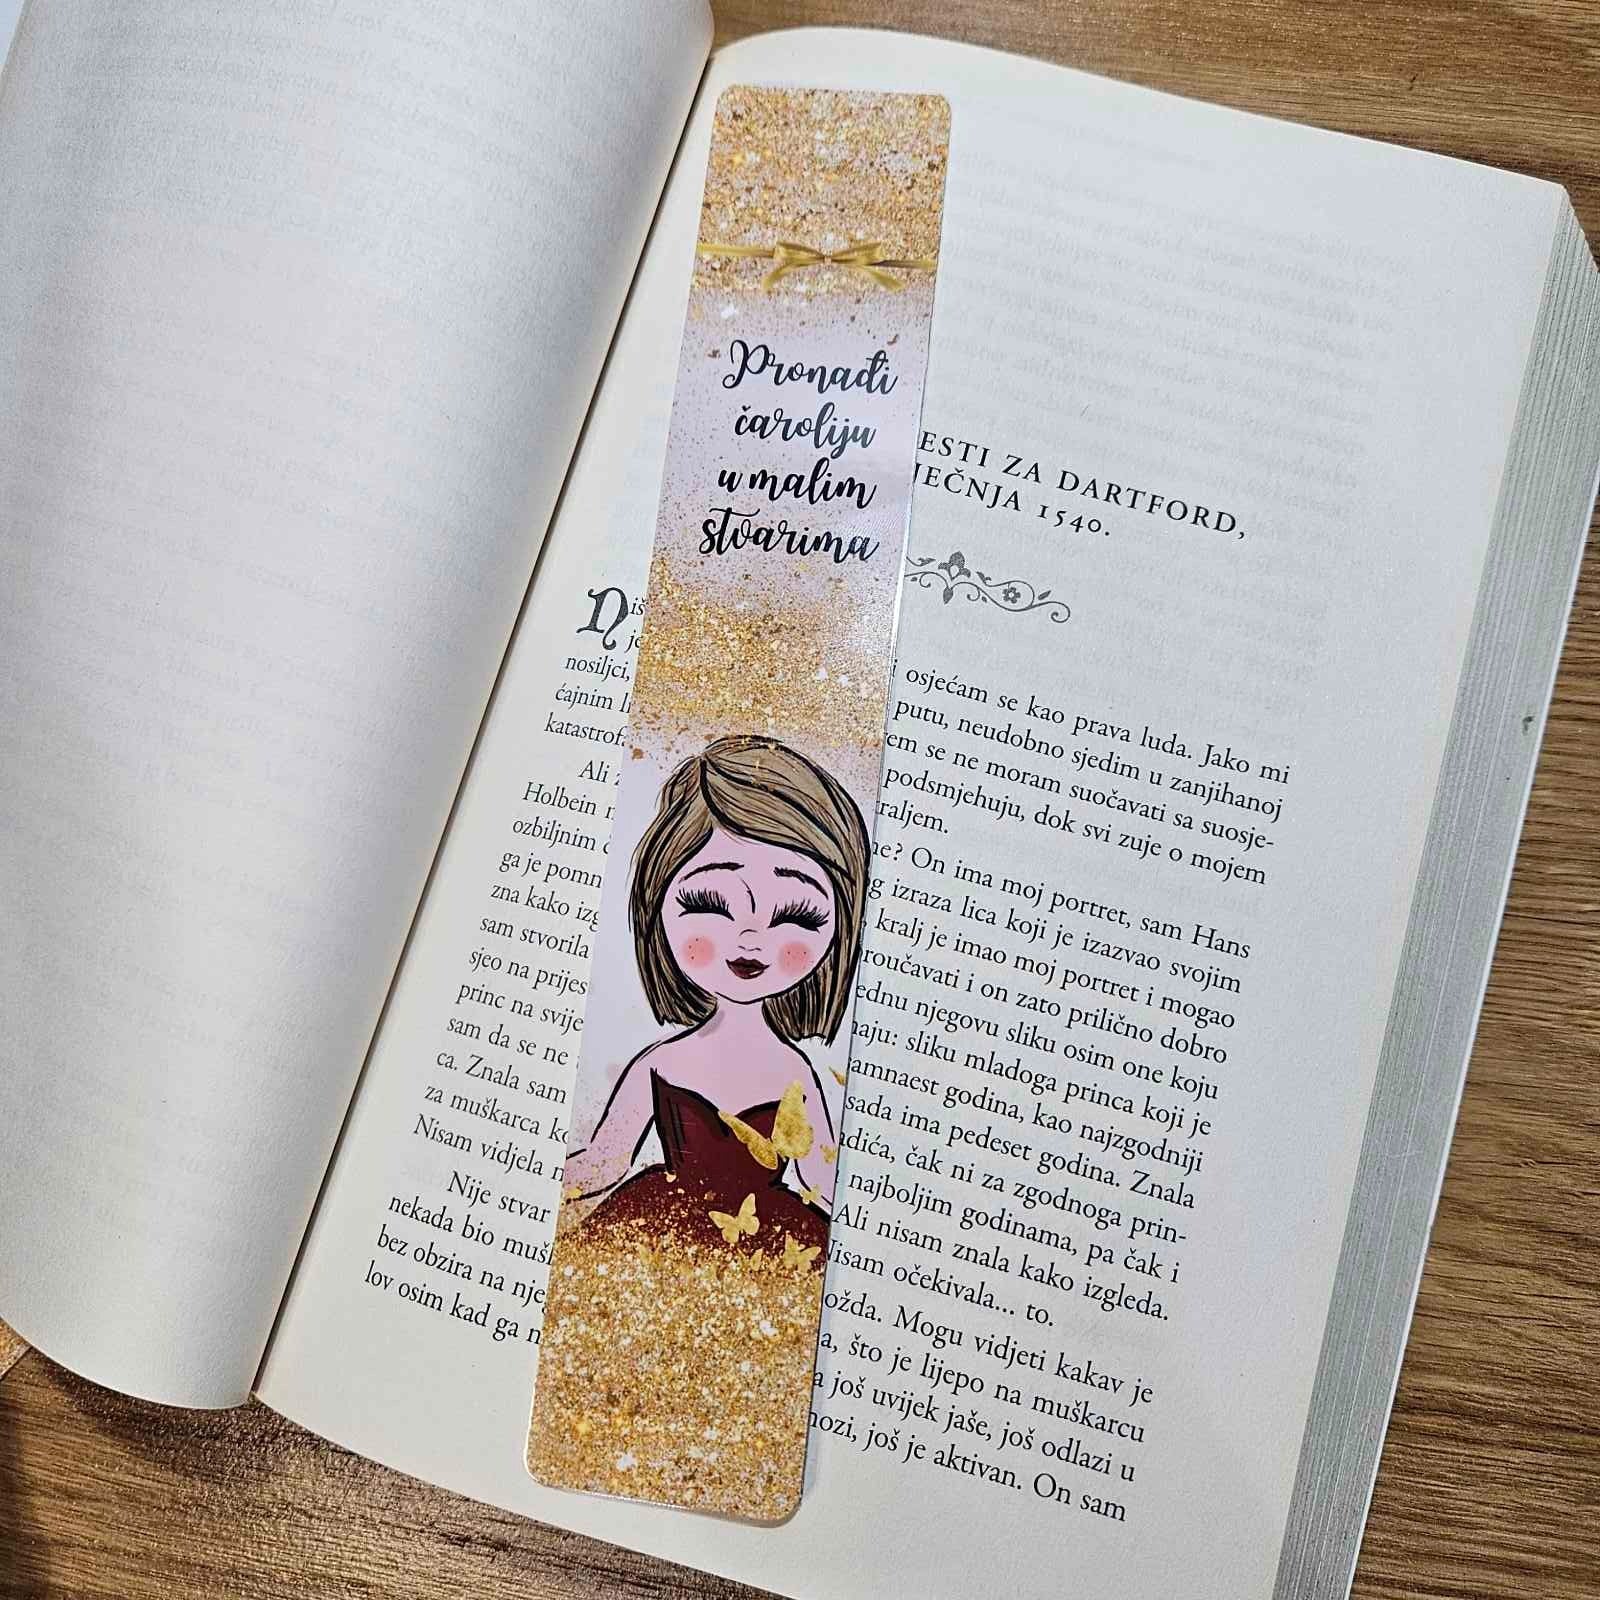 Pronađi
čaroliju
u malim
stvarima
ESTI ZA DARTFORD,
JEČNJA 1540.
Niš i osjećam se kao prava luda. Jako mi
je putu, neudobno sjedim u zanjihanoj
nosiljci, em se ne moram suočavati sa suosje-
ćajnim podsmjehuju, dok svi zuje o mojem
katastrof raljem.
Ali ne? On ima moj portret, sam Hans
Holbein g izraza lica koji je izazvao svojim
ozbiljnim kralj je imao moj portret i mogao
ga je pomn roučavati i on zato prilično dobro
zna kako izg ednu njegovu sliku osim one koju
sam stvorila naju: sliku mladoga princa koji je
sjeo na prijes amnaest godina, kao najzgodniji
princ na svije sada ima pedeset godina. Znala
sam da se ne adića, čak ni za zgodnoga prin-
ca. Znala sam najboljim godinama, pa čak i
za muškarca ko Ali nisam znala kako izgleda.
Nisam vidjela Nisam očekivala... to.
Nije stvar ožda. Mogu vidjeti kakav je
nekada bio muš a, što je lijepo na muškarcu
bez obzira na nje a još uvijek jaše, još odlazi u
lov osim kad ga n nozi, još je aktivan. On sam